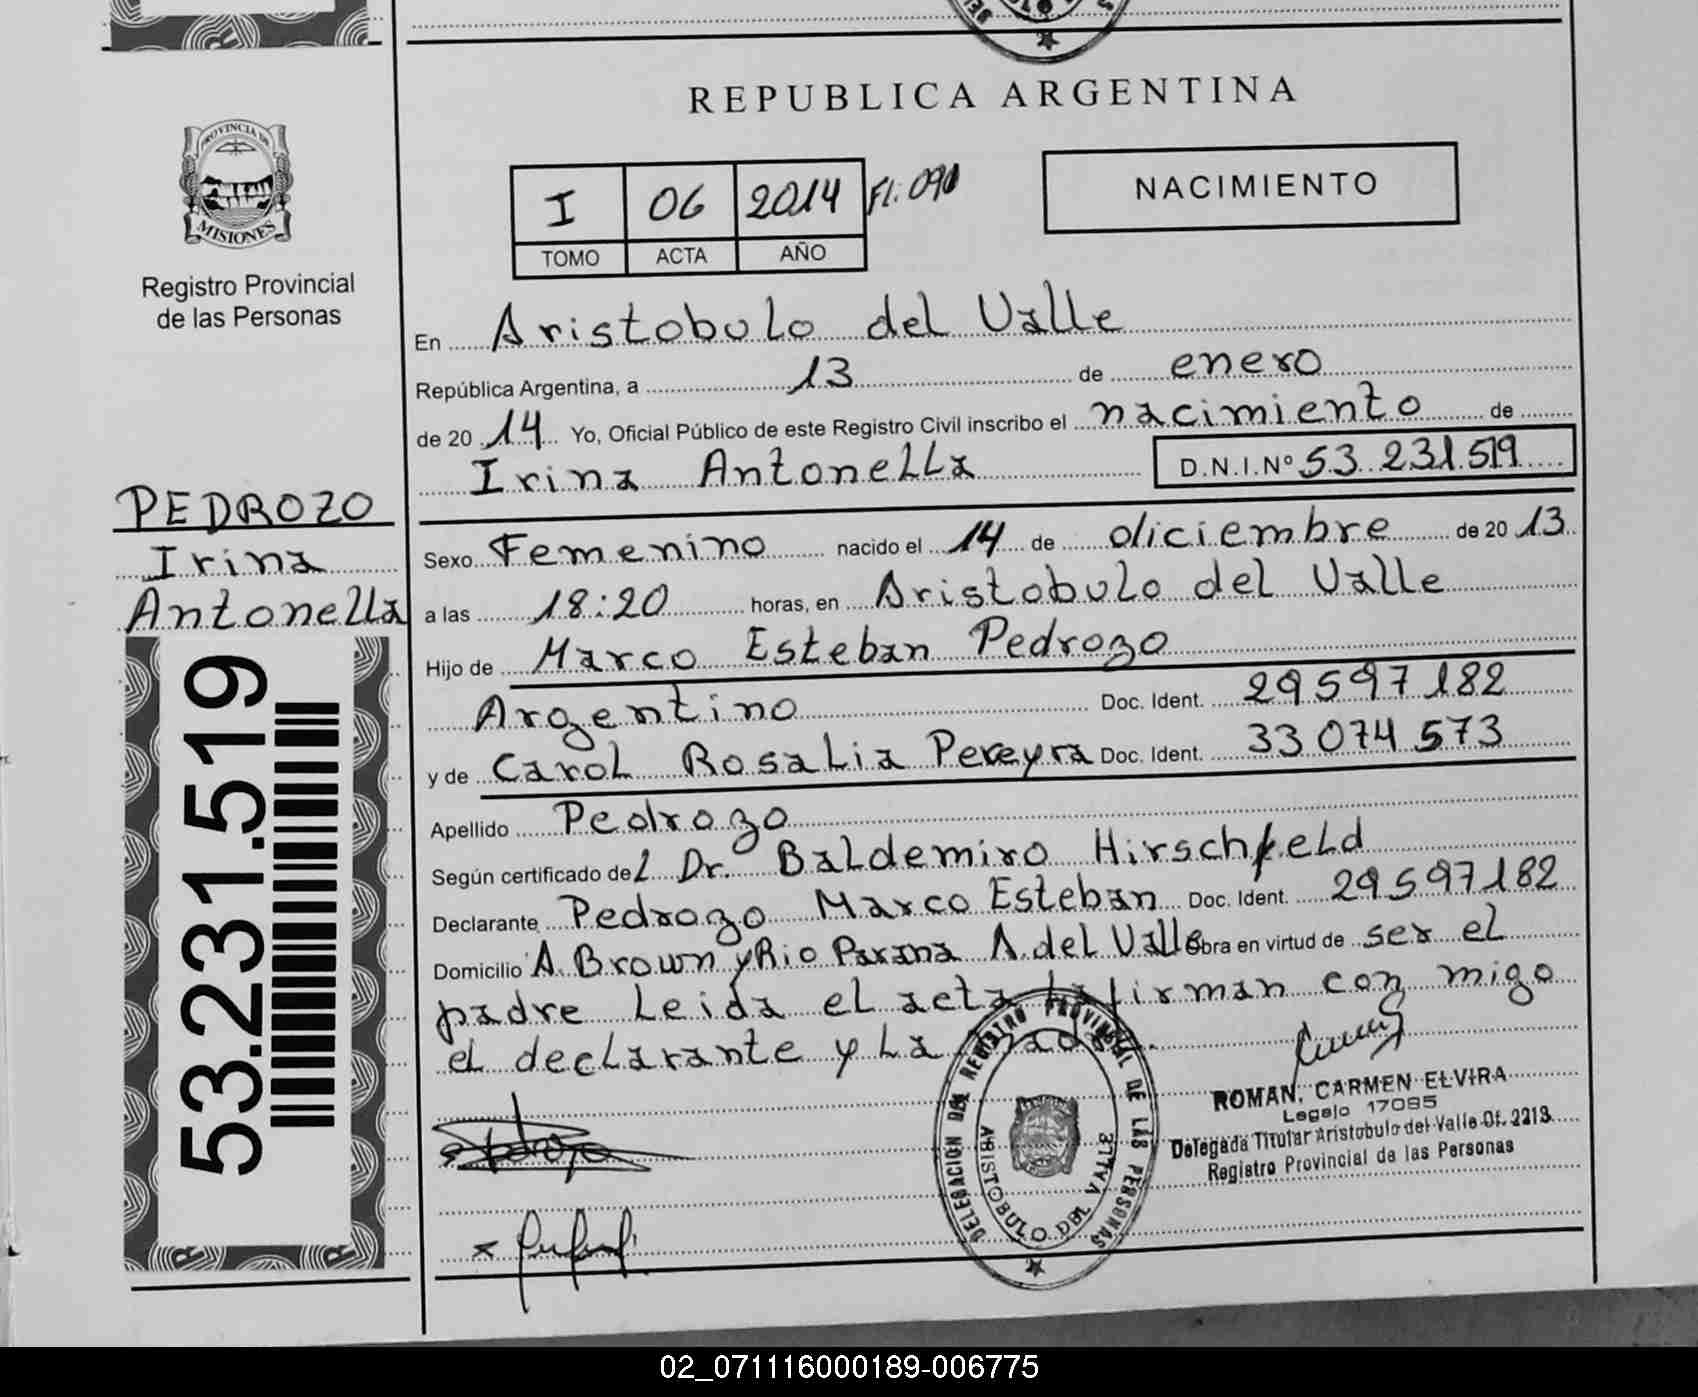 REPUBLICA ARGENTINA
PROVINCIA DE
MISIONES
Registro Provincial
de las Personas
I 06 2014 Fl: 090
TOMO ACTA AÑO
NACIMIENTO
En Aristobulo del Valle
República Argentina, a 13 de enero
de 20 14 Yo, Oficial Público de este Registro Civil inscribo el nacimiento de
Irina Antonella D.N.I.Nº 53 231.519
PEDROZO
Irina
Antonella
53.231.519
Sexo Femenino nacido el 14 de diciembre de 20 13
a las 18:20 horas, en Aristobulo del Valle
Hijo de Marco Esteban Pedrozo
Argentino Doc. Ident. 29597182
y de Carol Rosalia Pereyra Doc. Ident. 33 074 573
Apellido Pedrozo
Según certificado del Dr. Baldemiro Hirschfeld
Declarante Pedrozo Marco Esteban Doc. Ident. 29597182
Domicilio A. Brown y Rio Parana A. del Valle obra en virtud de ser el
padre Leida el acta la firman con migo
el declarante y La madre.
DELEGACION DEL REGISTRO PROVINCIAL DE LAS PERSONAS
ARISTOBULO DEL VALLE
ROMAN, CARMEN ELVIRA
Legajo 17095
Delegada Titular Aristobulo del Valle Of. 2213
Registro Provincial de las Personas
02_071116000189-006775